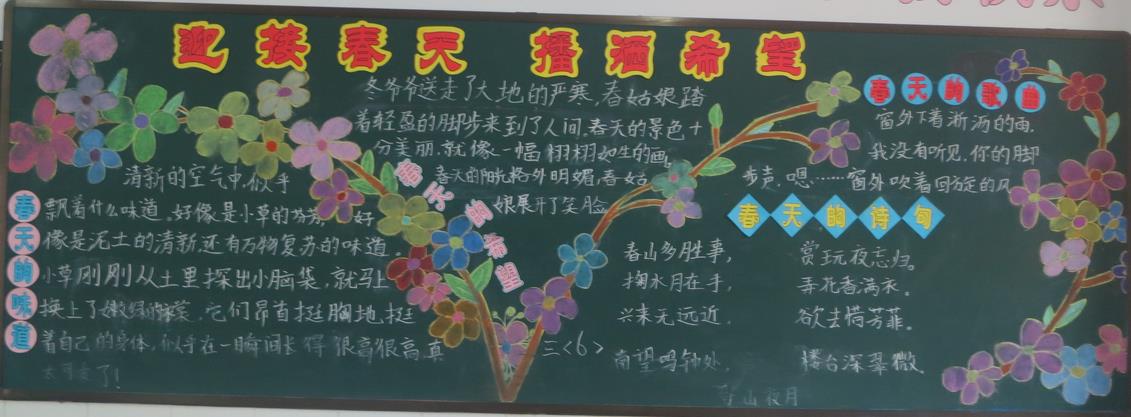 迎接春天 播洒希望
冬爷爷送走了大地的严寒,春姑娘踏
着轻盈的脚步来到了人间.春天的景色十
分美丽.就像一幅栩栩如生的画。
春天的阳光格外明媚,春姑
娘展开了笑脸
春天的希望
三<6>
春天的味道
清新的空气中,似乎
飘着什么味道。好像是小草的芬芳,好
像是泥土的清新.还有万物复苏的味道。
小草刚刚从土里探出小脑袋,就马上
换上了嫩绿的 它们昂首挺胸地,挺
着自己的身体,似乎在一瞬间长得很高很高,真
太可爱了!
春天的歌曲
窗外下着淅沥的雨.
我没有听见.你的脚
步声.嗯……窗外吹着回旋的风
春天的诗句
春山多胜事, 赏玩夜忘归。
掬水月在手, 弄花香满衣。
兴来无远近, 欲去惜芳菲。
南望鸣钟处, 楼台深翠微.
山夜月